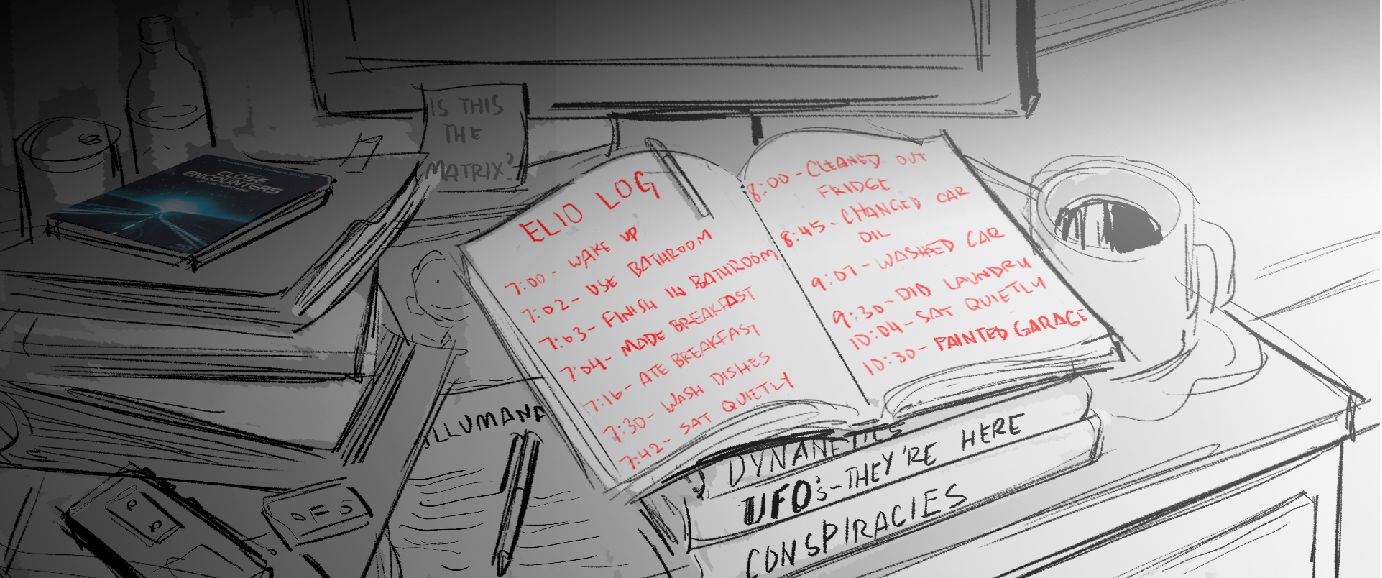 IS THIS
THE
MATRIX?
CLOSE
ENCOUNTERS
ELIO LOG
7:00- WAKE UP
7:02- USE BATHROOM
7:03- FINISH IN BATHROOM
7:04- MADE BREAKFAST
7:16- ATE BREAKFAST
7:30- WASH DISHES
7:42- SAT QUIETLY
8:00-CLEANED OUT
FRIDGE
8:45- CHANGED CAR
OIL
9:07-WASHED CAR
9:30-DID LAUNDRY
10:04-SAT QUIETLY
10:30- PAINTED GARAGE
ILLUMANA
DYNANETICS
UFO's-THEY'RE HERE
CONSPIRACIES